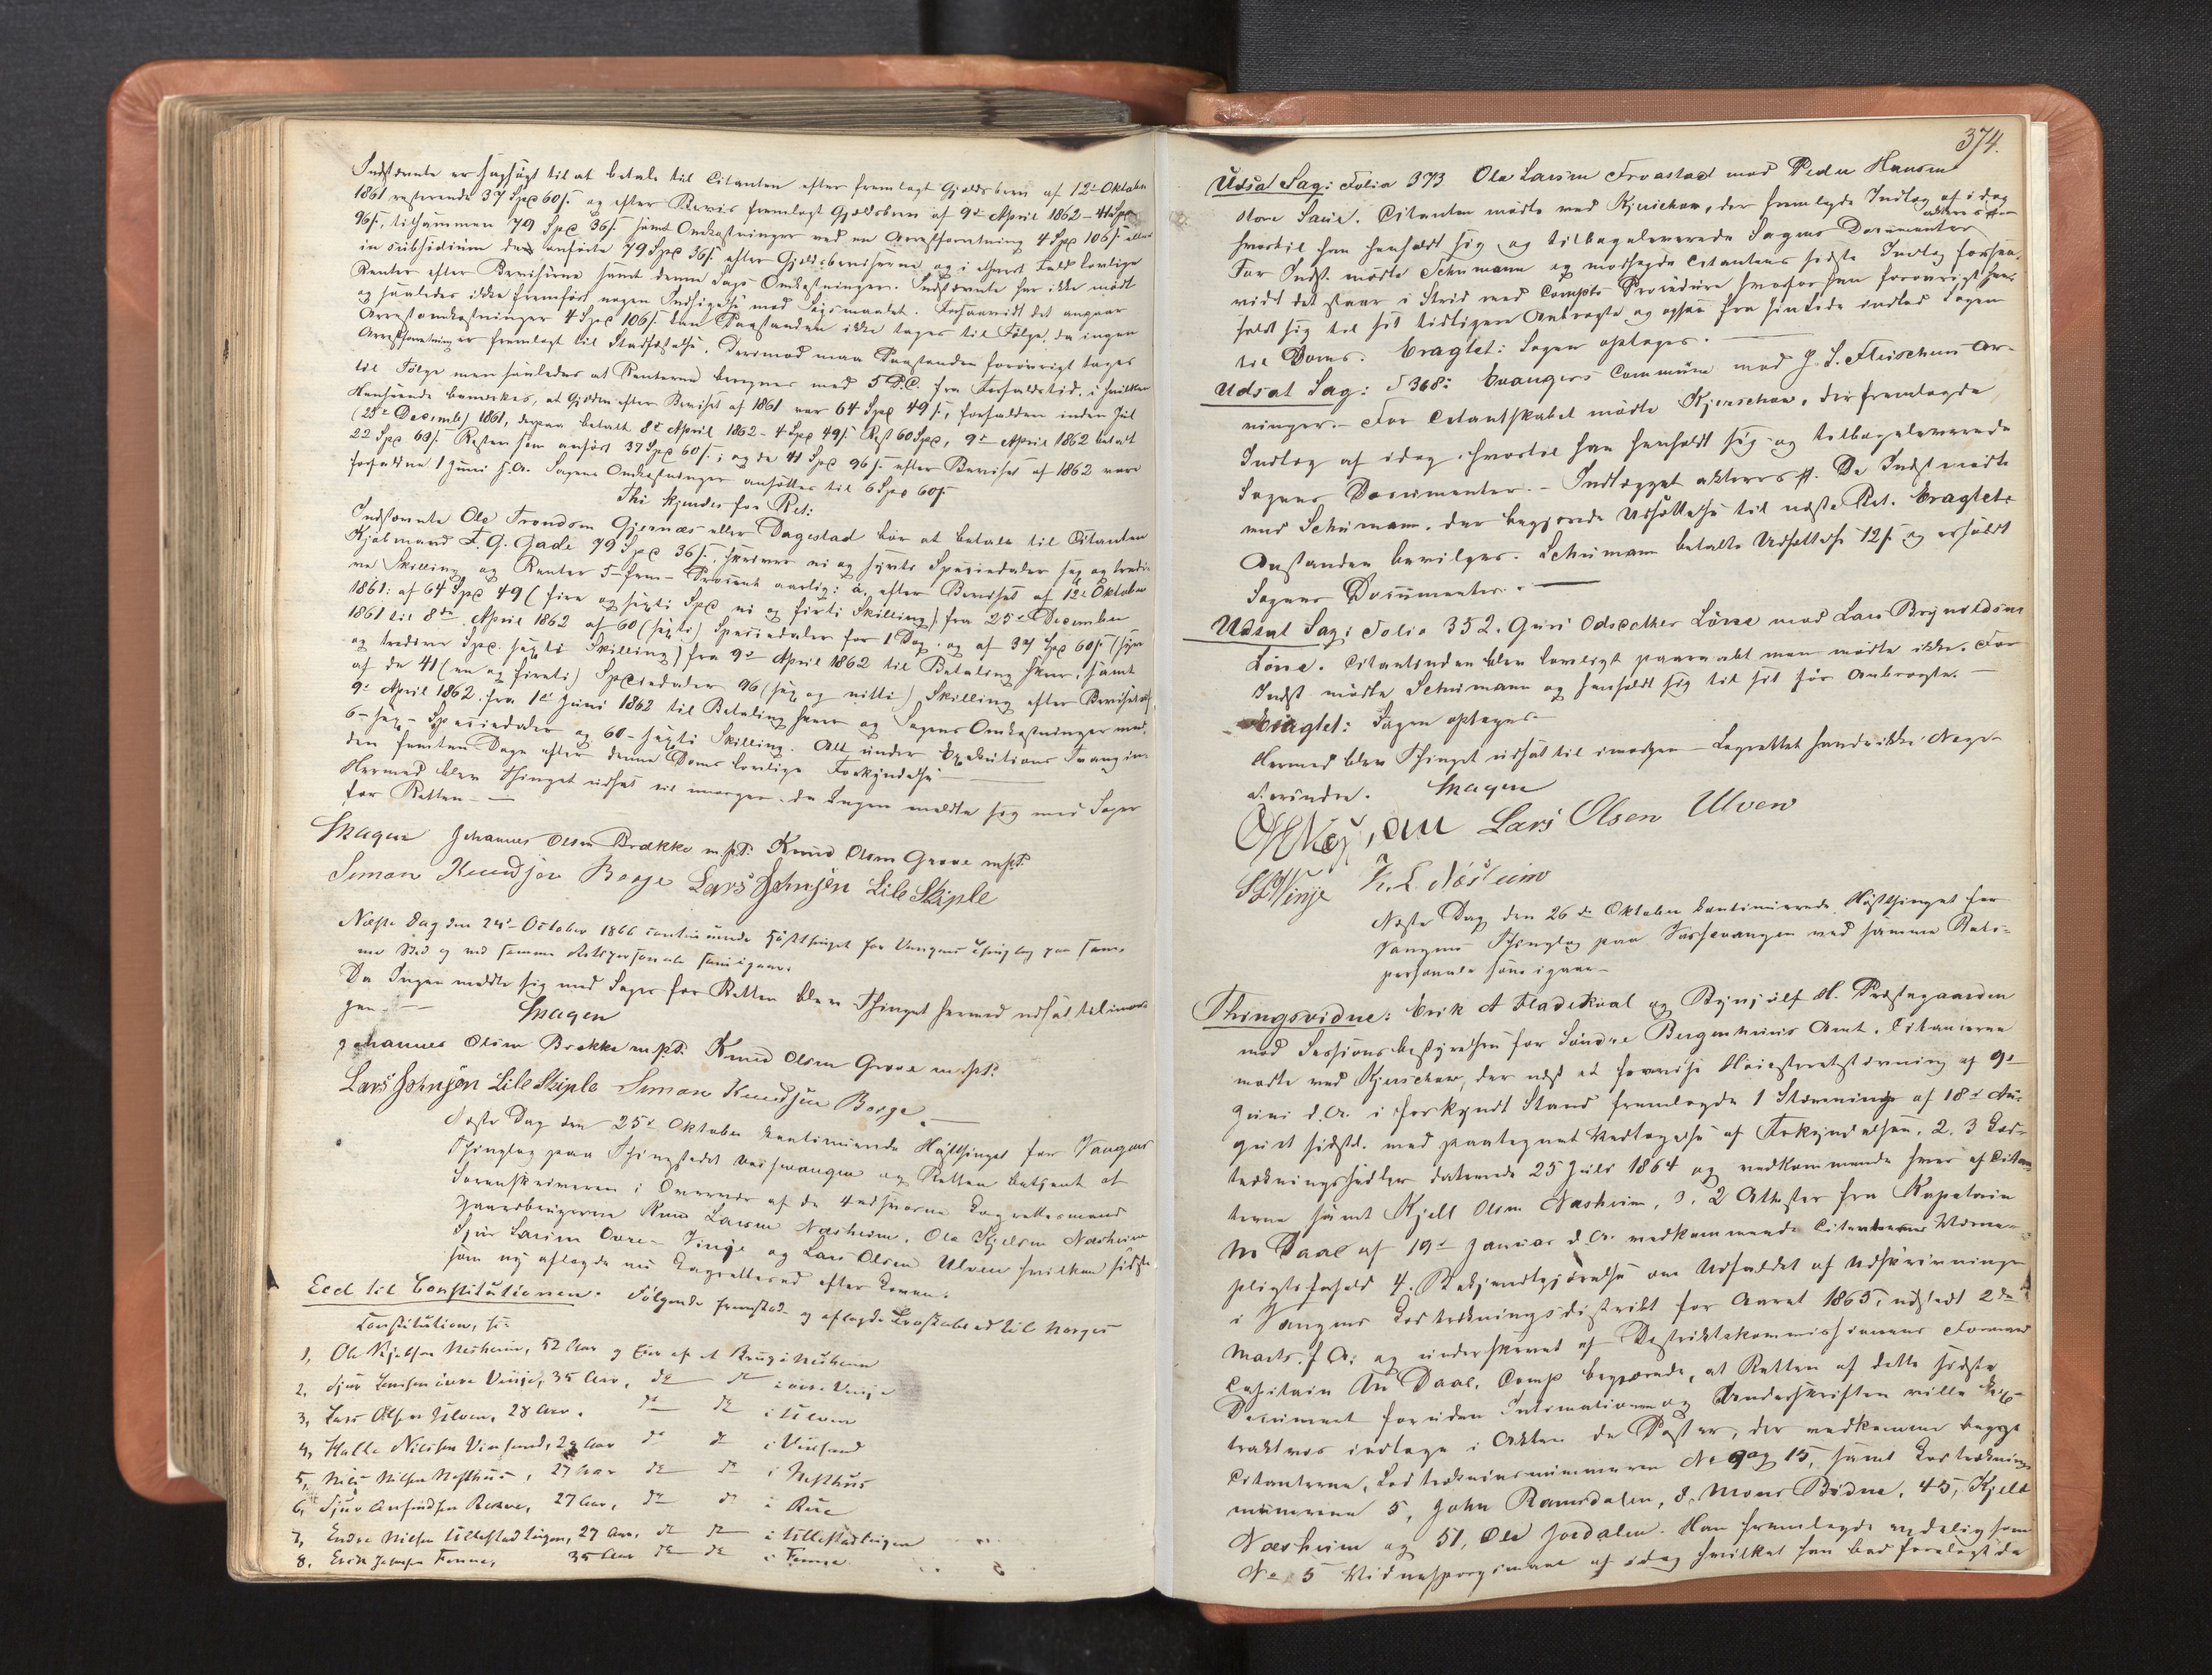 Indstevnte er sagsøgt til at betale til Citanten efter fremlagt Gjældsbrev af 12te Oktober
1861 resterende 37 Spd 60 s. og efter Bevis fremlagt Gjældsbrev af 9de April 1862 – 41 Spd
96 s., tilsammen 79 Spd 36 s. samt Omkostninger ved en Arrestforretning 4 Spd 106 s. eller
in subsidium den anførte 79 Spd 36 s. efter Gjældsbeviserne og i ethvert Fald lovlige
Renter efter Beviserne samt denne Sags Omkostninger. Indstevnte har ikke mødt
og saaledes ikke fremført nogen Indsigelse mod Søgsmaalet. Forsaavidt det angaar
Arrestomkostninger 4 Spd 106 s. kan Paastanden ikke tages til Følge, da ingen
Arrestforretning er fremlagt til Stadfæstelse. Derimod maa Paastanden forøvrigt tages
til Følge men saaledes at Renterne beregnes med 5 P.C. fra Forfaldstid, i hvilken
Henseende bemærkes, at Gjælden efter Beviset af 1861 var 64 Spd 49 s., forfalden inden Jul
(25de Decemb) 1861, derpaa betalt 8de April 1862 – 4 Spd 49 s. Rest 60 Spd, 9de April 1862 betalt
22 Spd 60 s. Resten som anført 37 Spd 60 s.; og de 41 Spd 96 s. efter Beviset af 1862 vare
forfaldne 1 Juni s.A. Sagens Omkostninger ansættes til 6 Spd 60 s.
Thi kjendes for Ret:
Indstevnte Ole Trondsen Gjernæs eller Dagestad bør at betale til Citanten
Kjøbmand F. G. Gade 79 Spd 36 s. skriver ni og syvti Speciedaler sex og tredi-
ve Skilling og Renter 5 – fem – Procent aarlig: a, efter Beviset af 12te Oktober
1861: af 64 Spd 49 (fire og sexti Spd ni og firti Skilling) fra 25de December
1861 til 8de April 1862 af 60 (sexti) Speciedaler for 1 Dag og af 37 Spd 60 s. (syv
og tredive Spd. sexti Skilling) fra 9de April 1862 til Betaling skeer, samt
af de 41 (en og fireti) Speciedaler 96 (sex og nitti) Skilling efter Beviset af
9de April 1862, fra 1ste Juni 1862 til Betaling skeer og Sagens Omkostninger med
6 – sex – Speciedaler og 60 – sexti Skilling. Alt under Exekutions Tvang in-
den femten Dage efter denne Doms lovlige Forkyndelse –
Hermed blev Thinget udsat til imorgen, da Ingen meldte sig med Sager
for Retten. —
Hagen Johannes Olsen Brække m.p.P. Knud Olsen Grove m.p.P.
Simon Knudsøn Borge Lars Johnsen Lile Skiple
Næste Dag den 24de October 1866 continuerede Høstthinget for Vangens Thinglag paa sam-
me Sted og med samme Retspersonale som igaar.
Da Ingen meldte sig med Sager for Retten blev Thinget hermed udsat til imor-
gen. —
Hagen
Johannes Olsen Brekke m.p.P. Knud Olsen Grove m.p.P.
Lars Johnsen Lile Skiple Simon Knudsøn Borge —
Næste Dag den 25de Oktober kontinuerede Høstthinget for Vangens
Thinglag paa Thingstedet Vossevangen og Retten betjent af
Sorenskriveren i Overvær af de 4 edsvorne Lagrettesmænd
Gaardbrugerne Knud Larsen Næsheim, Ole Kjelsen Næsheim
Sjur Larsen Øvre-Vinje og Lars Olsen Ulven hvilken sidste
som ny aflagde nu Lagrettesed efter Loven.
Eed til Constitutionen. Følgende fremstod og aflagde Troskabsed til Norges
Constitution, s:
1, Ole Kjelsen Nesheim, 52 Aar og Eier af et Brug i Nesheim
2, Sjur Larsen øvre Vinje, 35 Aar, do do i øvre Vinje
3, Lars Olsen Ulven, 28 Aar, do do i Ulven
4, Halle Nilsen Vinsand, 29 Aar do do i Vinsand
5, Nils Nilsen Nesthus, 27 Aar do do i Nesthus
6, Sjur Aufindsen Reque, 27 Aar, do do i Rue
7, Endre Nielsen Ullestad teigen, 27 Aar. do do i Ullestadteigen
8, Erik Johnsen Finne, 35 Aar do do i Finne
374.
Udsat Sag: Folio 373 Ole Larsen Froastad mod Peder Hansen
store Saue. Citanten mødte ved Kjerschow, der fremlagde Indlæg af idag
hvortil han henholdt sig og tilbageleverede Sagens Documenter akteres ##
For Indst. mødte Schumann og modsagde Citantens sidste Indlæg forsaa-
vidt det staar i Strid med Compts Procedure hvorfor han forøvrigt hen-
holdt sig til sit tidligere Anbragte og ogsaa fra sin Side indlod Sagen
til Doms. Eragtet: Sagen optages. —
Udsat Sag: F 368: Evangers Commune mod J. S. Fleischers Ar-
vinger. – For Citantskabet mødte Kjerschow, der fremlagde
Indlæg af idag, hvortil han henholdt sig og tilbageleverede
Sagens Documenter. – Indlægget akteres ##. De Indst mødte
ved Schumann, der begjærede Udsættelse til næste Ret. Eragtet:
Anstanden bevilges. Schumann betalte Udsættelse 12 s. og erholdt
Sagens Documenter. —
Udsat Sag: Folio 352. Guri Odsdatter Lørve mod Lars Brynildsen
Lone. Citantinden blev lovligt paaraabt men mødte ikke. For
Indst mødte Schumann og henholdt sig til sit før Anbragte. —
Eragtet: Sagen optages. –
Hermed blev Thinget udsat til imorgen – Lagrettet havde ikke Noget
at erindre. Hagen
Lars Olsen Ulven
S L Vinje K. L. Næsheim
Næste Dag den 26de Oktober kontinuerede Høstthinget for
Vangens Thinglag paa Vossevangen med samme Rets-
personale som igaar –
Thingsvidne: Erik A Fladekval og Brynjulf H. Præstegaarden
mod Sessionsbestyrelsen for Søndre Bergenhuus Amt. Citanterne
mødte ved Kjerschow, der næst at forevise Høiesteretsstevning af 9de
Juni d.A. i forkyndt Stand fremlagde 1 Stevning af 18de Au-
gust sidstl. med paategnet Vedtagelse af Forkyndelsen, 2. 3 Lod-
trækningssedler daterede 25 Juli 1864 og vedkommende hver af Citan-
terne samt Kjell Olsen Næsheim, 3. 2 Attester fra Kapetain
Aw Daae af 19de Januar d.A. vedkommende Citanternes Værne-
pligtsforhold 4. Bekjendtgjørelse om Udfaldet af Udskrivningen
i Vangens Lodtrækningsdistrikt for Aaret 1865, udstedt 2den
Marts s. A. og underskrevet af Distriktskommissionens Formand
Capitain Aw Daae. Comp begjærede, at Retten af dette sidste
Document foruden Intimationen og Underskriften vilde ex-
traktvis indtage i Akten de Poster, der vedkomme begge
Citanterne, Lodtrækningsnummeren No 9 og 15, samt Lodtræknings
numerene 5, John Ramsdalen, 8, Mons Bidne, 45, Kjell
Næsheim og 51, Ole Jordalen. Han fremlagde endelig som
No 5 Vidnespørgsmaal af idag hvilket han bad forelagt de